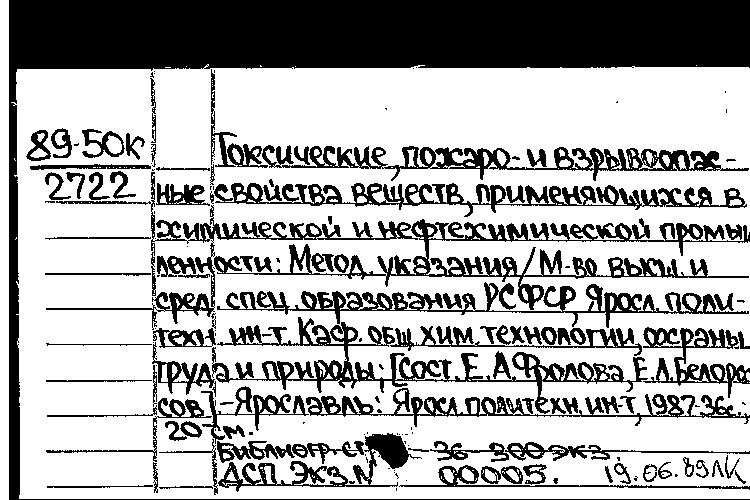 89-50К
2722
Токсические, пожаро- и взрывоопас-
ные свойства веществ, применяющихся в
химической и нефтехимической промыш
ленности: Метод. указания / М-во высш. и
сред. спец. образования РСФСР, Яросл. поли-
техн. ин-т. Каф. общ. хим. технологии, охраны
труда и природы; [Сост. Е.А. Фролова, Е.Л. Белорос
сов]. - Ярославль: Яросл. политехн. ин-т, 1987-36с.;
20 см.
Библиогр. ст 36 300 экз.
ДСП. Экз. N 00005. 19.06.89